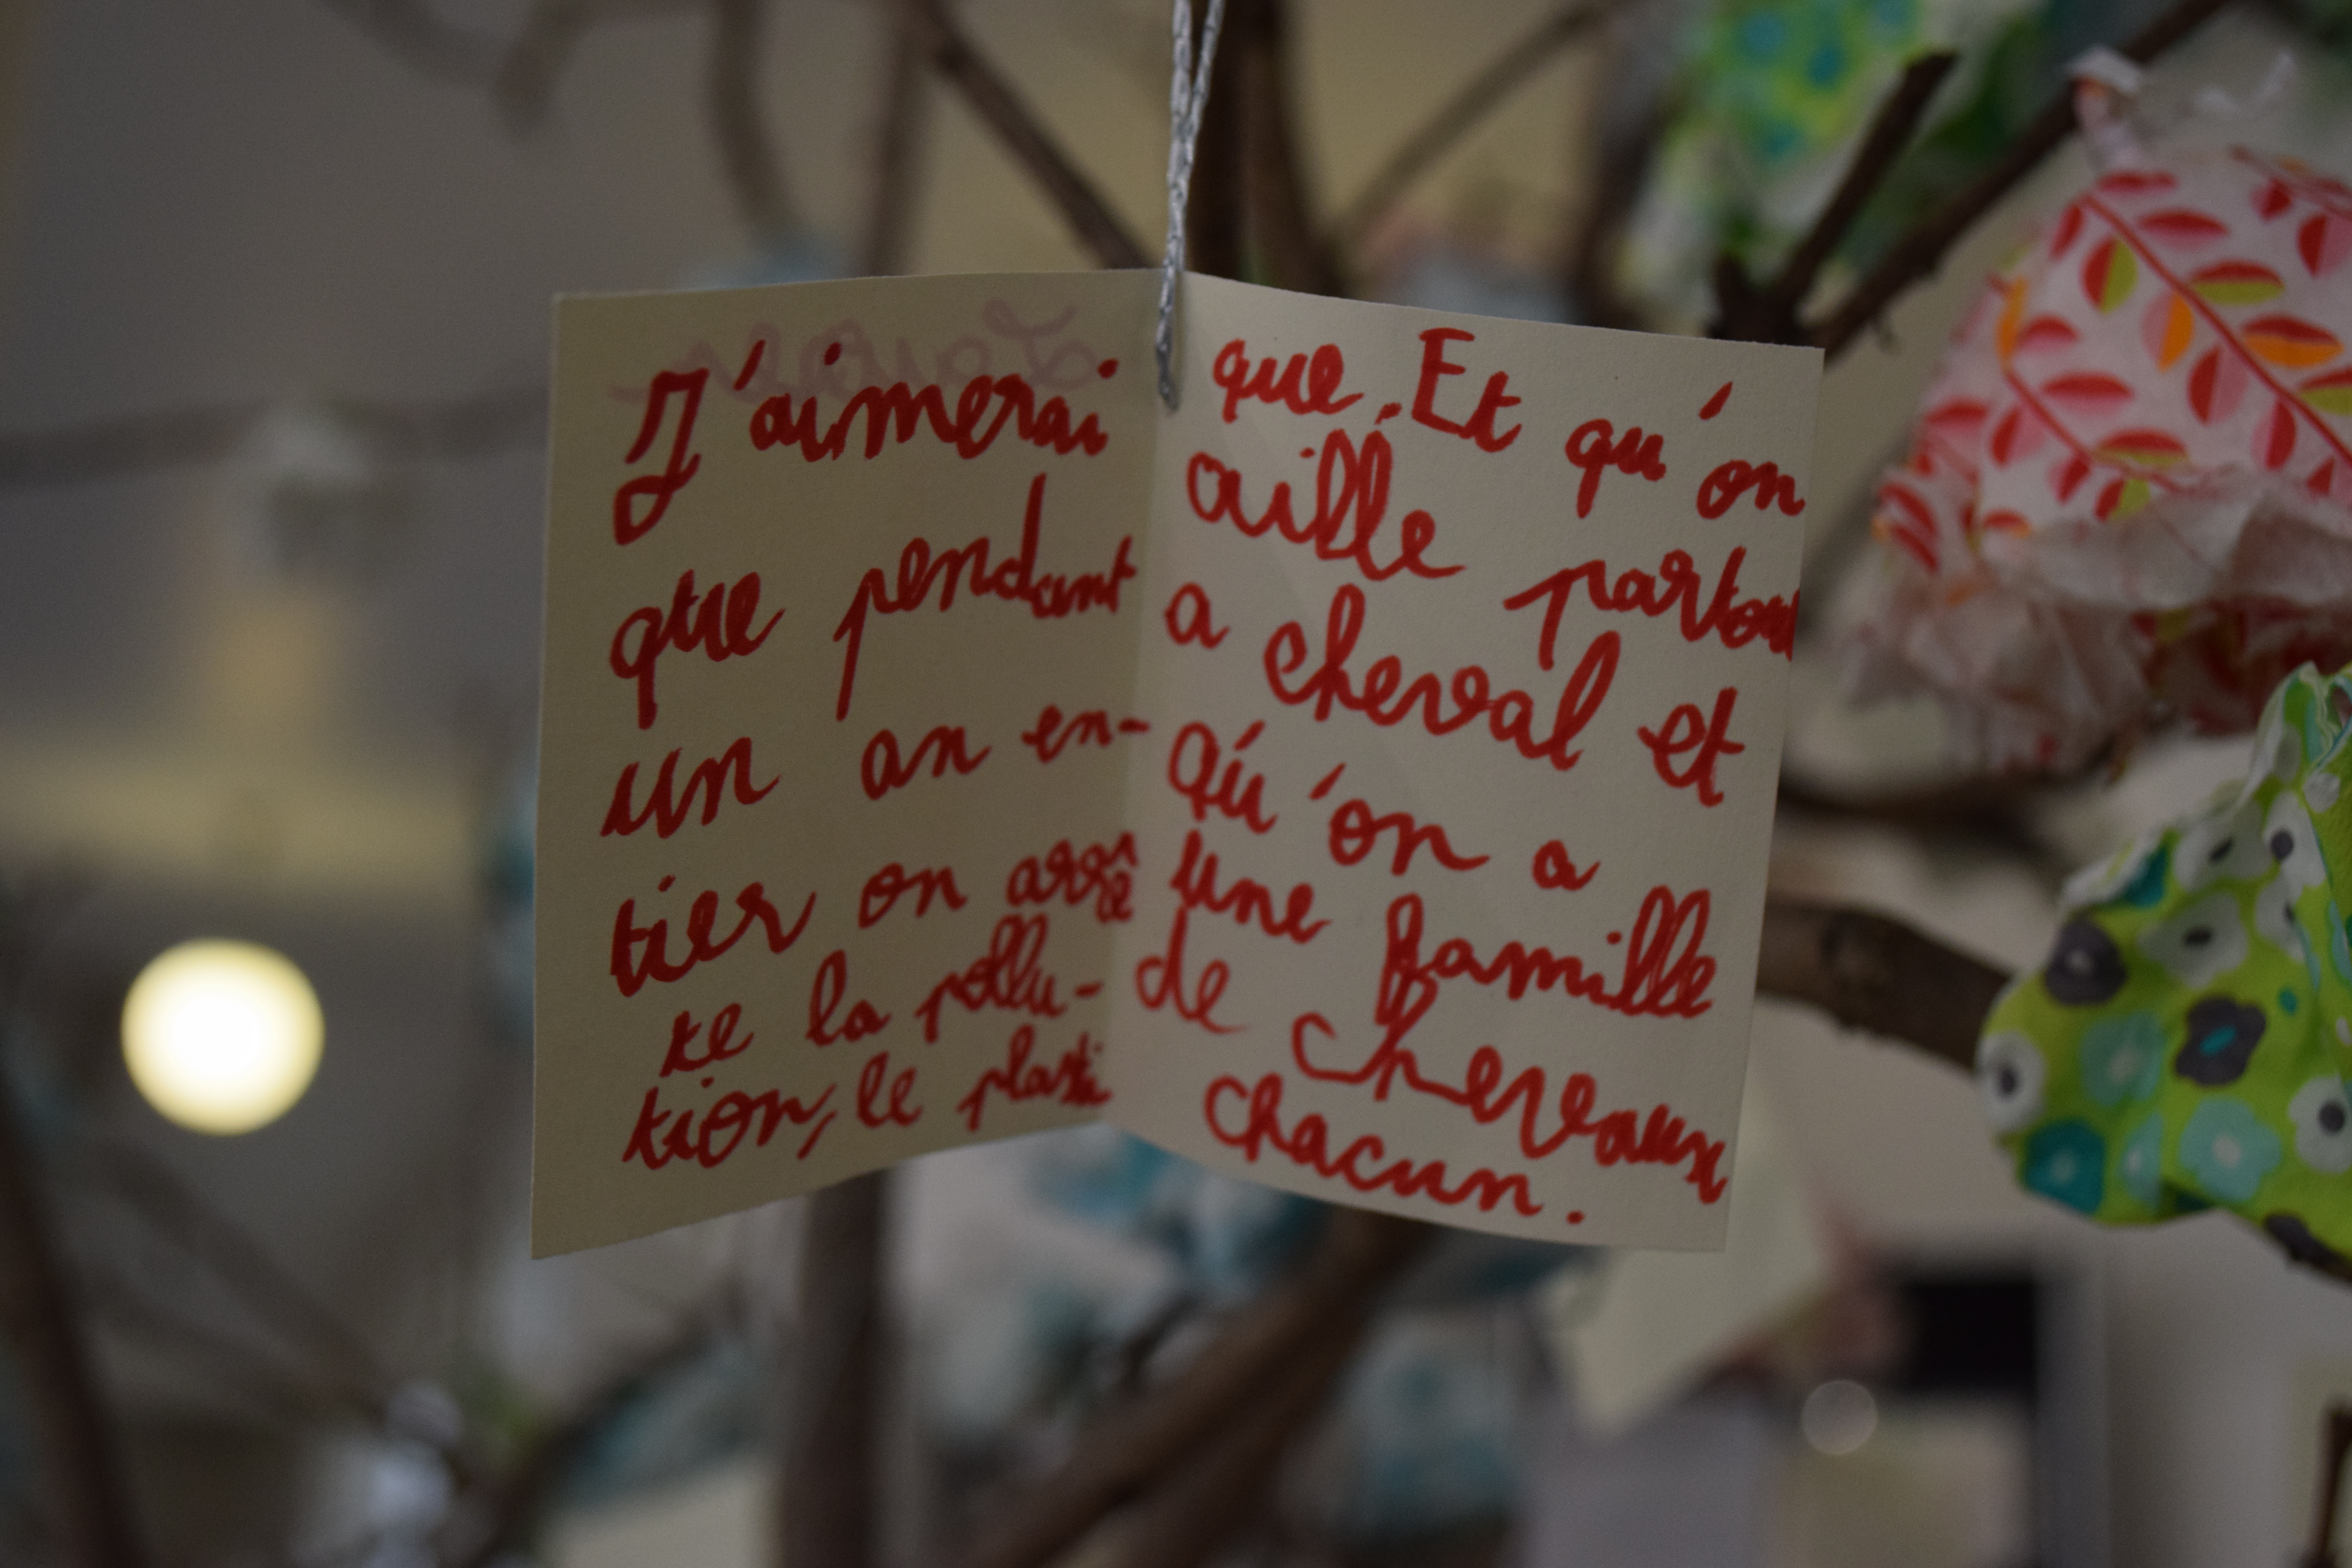 J'aimerai
que pendant
un an en-
tier on arrê
te la pollu-
tion, le plasti
que. Et qu'on
aille partout
a cheval et
qu'on a
une famille
de chevaux
chacun.